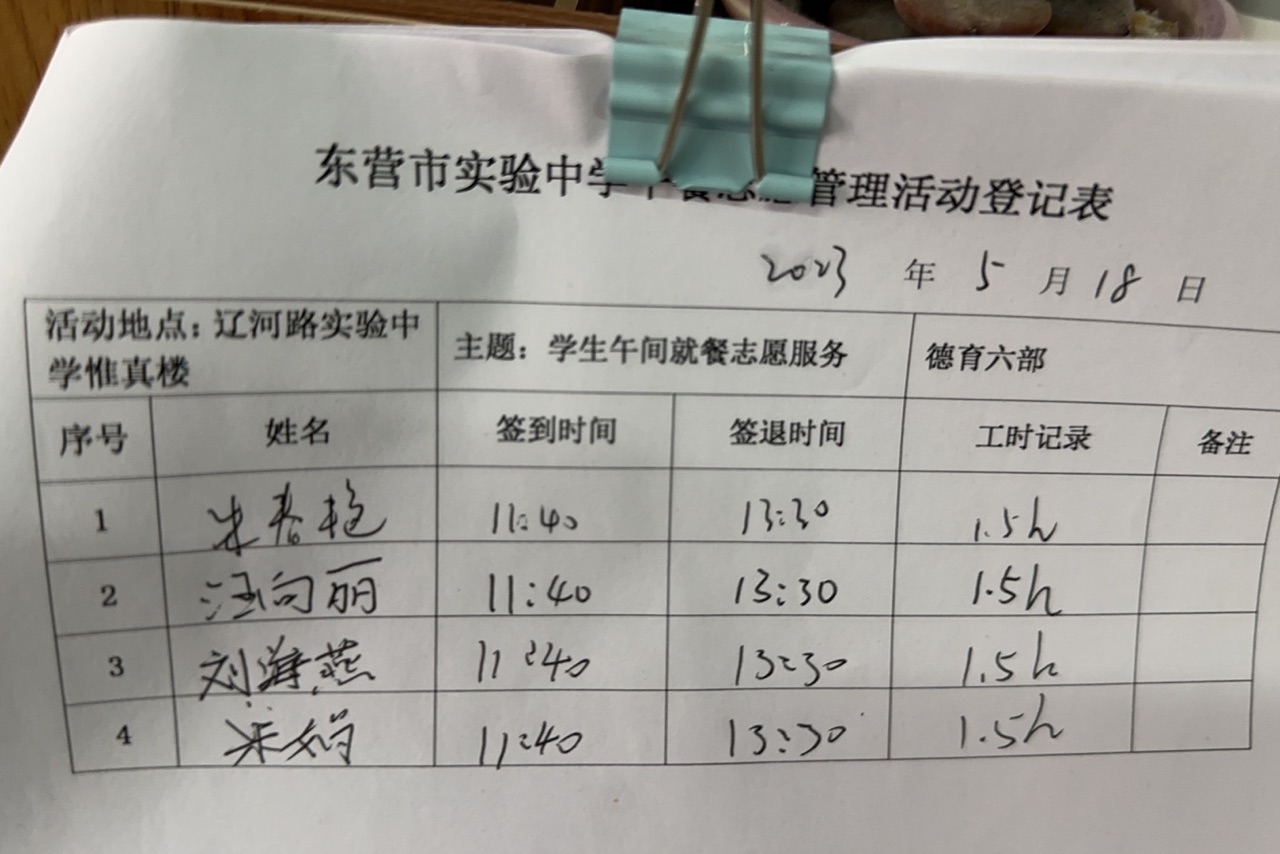 东营市实验中学午餐志愿管理活动登记表
2023 年 5 月 18 日
活动地点：辽河路实验中学惟真楼 主题：学生午间就餐志愿服务 德育六部
序号 姓名 签到时间 签退时间 工时记录 备注
1 朱春艳 11:40 13:30 1.5h
2 汪向丽 11:40 13:30 1.5h
3 刘海燕 11:40 13:30 1.5h
4 11:40 13:30 1.5h